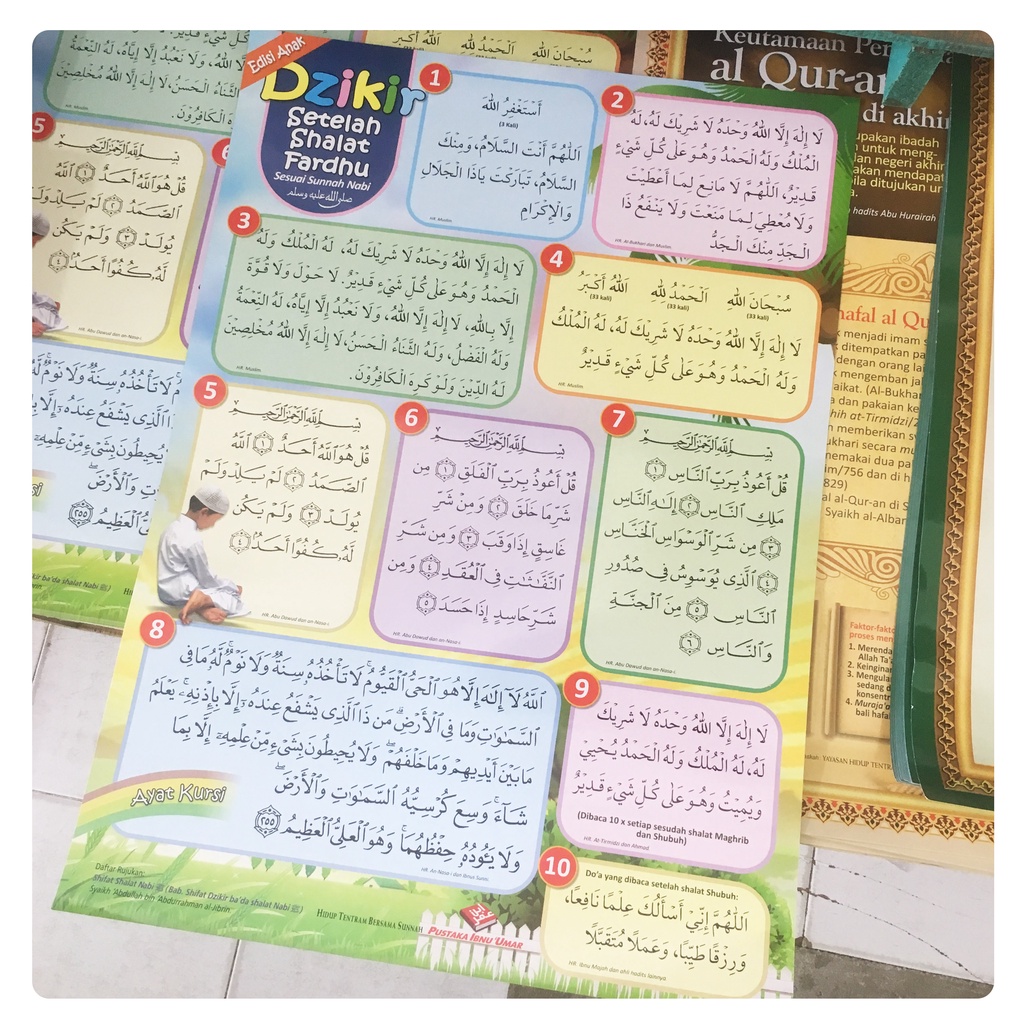 Edisi Anak
Dzikir
Setelah
Shalat
Fardhu
Sesuai Sunnah Nabi
صلى الله عليه وسلم
1
أَسْتَغْفِرُ اللهَ
(3 Kali)
اَللَّهُمَّ أَنْتَ السَّلَامُ، وَمِنْكَ
السَّلَامُ، تَبَارَكْتَ يَاذَا الْجَلَالِ
وَالْإِكْرَامِ
HR. Muslim.
2
لَا إِلٰهَ إِلَّا اللهُ وَحْدَهُ لَا شَرِيْكَ لَهُ، لَهُ
الْمُلْكُ وَلَهُ الْحَمْدُ وَهُوَ عَلَى كُلِّ شَيْءٍ
قَدِيْرٌ، اَللَّهُمَّ لَا مَانِعَ لِمَا أَعْطَيْتَ
وَلَا مُعْطِيَ لِمَا مَنَعْتَ وَلَا يَنْفَعُ ذَا
الْجَدِّ مِنْكَ الْجَدُّ
HR. Al-Bukhari dan Muslim.
3
لَا إِلٰهَ إِلَّا اللهُ وَحْدَهُ لَا شَرِيْكَ لَهُ، لَهُ الْمُلْكُ وَلَهُ
الْحَمْدُ وَهُوَ عَلَى كُلِّ شَيْءٍ قَدِيْرٌ. لَا حَوْلَ وَلَا قُوَّةَ
إِلَّا بِاللهِ، لَا إِلٰهَ إِلَّا اللهُ، وَلَا نَعْبُدُ إِلَّا إِيَّاهُ، لَهُ النِّعْمَةُ
وَلَهُ الْفَضْلُ، وَلَهُ الثَّنَاءُ الْحَسَنُ، لَا إِلٰهَ إِلَّا اللهُ مُخْلِصِيْنَ
لَهُ الدِّيْنَ وَلَوْ كَرِهَ الْكَافِرُوْنَ.
HR. Muslim.
4
سُبْحَانَ اللهِ الْحَمْدُ لِلهِ اللهُ أَكْبَرُ
(33 kali) (33 kali) (33 kali)
لَا إِلٰهَ إِلَّا اللهُ وَحْدَهُ لَا شَرِيْكَ لَهُ، لَهُ الْمُلْكُ
وَلَهُ الْحَمْدُ وَهُوَ عَلَى كُلِّ شَيْءٍ قَدِيْرٌ
HR. Muslim.
5
بِسْمِ ٱللَّهِ ٱلرَّحْمَٰنِ ٱلرَّحِيمِ
قُلْ هُوَ ٱللَّهُ أَحَدٌ ١ ٱللَّهُ
ٱلصَّمَدُ ٢ لَمْ يَلِدْ وَلَمْ
يُولَدْ ٣ وَلَمْ يَكُن
لَّهُۥ كُفُوًا أَحَدٌۢ ٤
HR. Abu Dawud dan an-Nasa-i.
6
بِسْمِ ٱللَّهِ ٱلرَّحْمَٰنِ ٱلرَّحِيمِ
قُلْ أَعُوذُ بِرَبِّ ٱلْفَلَقِ ١ مِن
شَرِّ مَا خَلَقَ ٢ وَمِن شَرِّ
غَاسِقٍ إِذَا وَقَبَ ٣ وَمِن شَرِّ
ٱلنَّفَّٰثَٰتِ فِى ٱلْعُقَدِ ٤ وَمِن
شَرِّ حَاسِدٍ إِذَا حَسَدَ ٥
HR. Abu Dawud dan an-Nasa-i.
7
بِسْمِ ٱللَّهِ ٱلرَّحْمَٰنِ ٱلرَّحِيمِ
قُلْ أَعُوذُ بِرَبِّ ٱلنَّاسِ ١
مَلِكِ ٱلنَّاسِ ٢ إِلَٰهِ ٱلنَّاسِ
٣ مِن شَرِّ ٱلْوَسْوَاسِ ٱلْخَنَّاسِ
٤ ٱلَّذِى يُوَسْوِسُ فِى صُدُورِ
ٱلنَّاسِ ٥ مِنَ ٱلْجِنَّةِ
وَٱلنَّاسِ ٦
HR. Abu Dawud dan an-Nasa-i.
8
ٱللَّهُ لَآ إِلَٰهَ إِلَّا هُوَ ٱلْحَىُّ ٱلْقَيُّومُ ۚ لَا تَأْخُذُهُۥ سِنَةٌ وَلَا نَوْمٌ ۚ لَّهُۥ مَا فِى
ٱلسَّمَٰوَٰتِ وَمَا فِى ٱلْأَرْضِ ۗ مَن ذَا ٱلَّذِى يَشْفَعُ عِندَهُۥٓ إِلَّا بِإِذْنِهِۦ ۚ يَعْلَمُ
مَا بَيْنَ أَيْدِيهِمْ وَمَا خَلْفَهُمْ ۖ وَلَا يُحِيطُونَ بِشَىْءٍ مِّنْ عِلْمِهِۦٓ إِلَّا بِمَا
شَآءَ ۚ وَسِعَ كُرْسِيُّهُ ٱلسَّمَٰوَٰتِ وَٱلْأَرْضَ ۖ
وَلَا يَـُٔودُهُۥ حِفْظُهُمَا ۚ وَهُوَ ٱلْعَلِىُّ ٱلْعَظِيمُ ٢٥٥
Ayat Kursi
HR. An-Nasa-i dan Ibnus Sunni.
9
لَا إِلٰهَ إِلَّا اللهُ وَحْدَهُ لَا شَرِيْكَ
لَهُ، لَهُ الْمُلْكُ وَلَهُ الْحَمْدُ يُحْيِيْ
وَيُمِيْتُ وَهُوَ عَلَى كُلِّ شَيْءٍ قَدِيْرٌ
(Dibaca 10 x setiap sesudah shalat Maghrib
dan Shubuh)
HR. At-Tirmidzi dan Ahmad.
10
Do'a yang dibaca setelah shalat Shubuh:
اَللَّهُمَّ إِنِّيْ أَسْأَلُكَ عِلْمًا نَافِعًا،
وَرِزْقًا طَيِّبًا، وَعَمَلًا مُتَقَبَّلًا
HR. Ibnu Majah dan ahli hadits lainnya.
Daftar Rujukan:
Shifat Shalat Nabi ﷺ (Bab. Shifat Dzikir ba'da shalat Nabi ﷺ)
Syaikh 'Abdullah bin 'Abdurrahman al-Jabrin
HIDUP TENTRAM BERSAMA SUNNAH
PUSTAKA IBNU 'UMAR
Keutamaan
al Qur-an
di akhir
upakan ibadah
untuk meng-
dan negeri akhir
akan mendapat
ila ditujukan un
hadits Abu Hurairah
hafal al Qu
menjadi imam s
ditempatkan pa
dengan orang la
mengemban ja
aikat. (Al-Bukhar
dan pakaian ke
hih at-Tirmidzi/2
memberikan sy
ukhari secara mu
memakai dua pa
im/756 dan di h
829)
al al-Qur-an di S
Syaikh al-Alban
Faktor-fakto
proses men
1. Merenda
Allah Ta'a
2. Keinginan
3. Mengulan
sedang d
konsentr
4. Muraja'a
bali hafa
YAYASAN HIDUP TENTRA